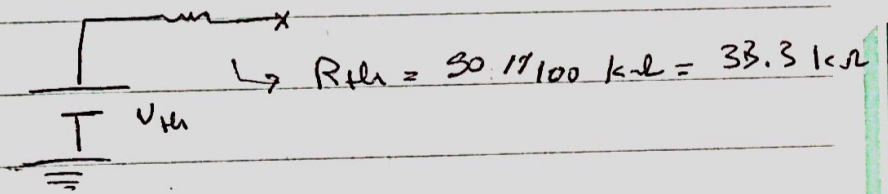 ↳ Rth = 50 // 100 kΩ = 33.3 kΩ
Vth